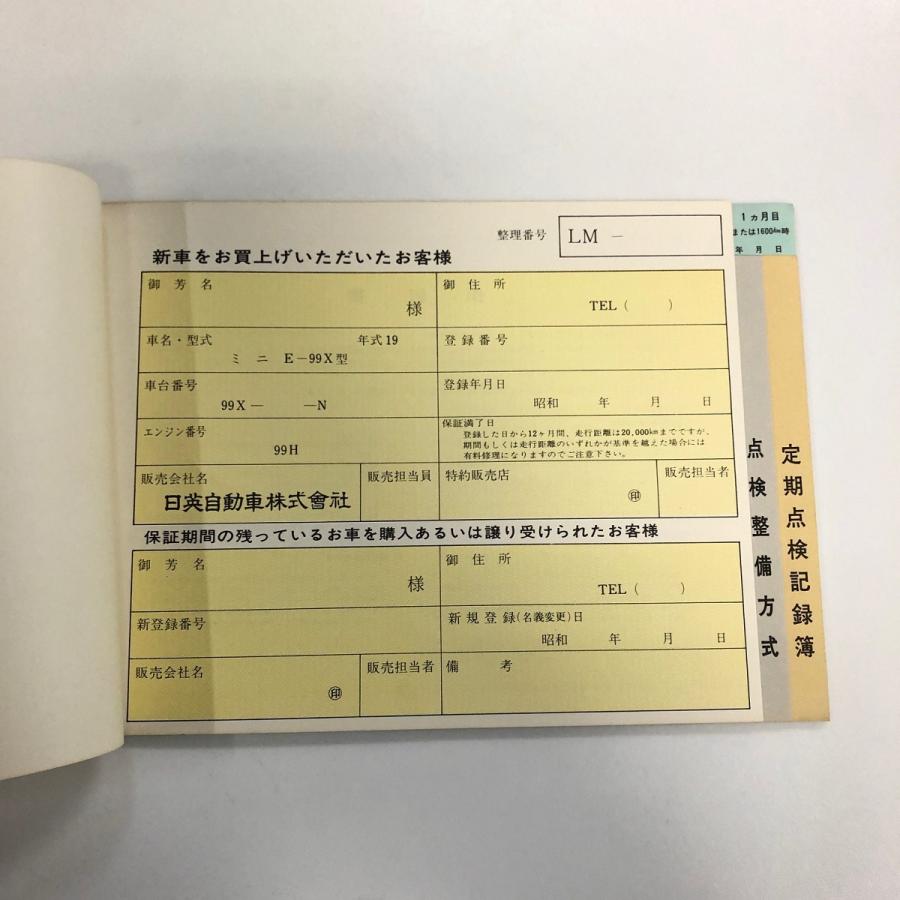 整理番号 LM －
新車をお買上げいただいたお客様
御芳名 様
御住所 TEL（　　）
車名・型式 年式19
ミニ E－99X型
登録番号
車台番号
99X－　　－N
登録年月日
昭和　年　月　日
エンジン番号
99H
保証満了日
登録した日から12ヶ月間、走行距離は20,000kmまでですが、
期間もしくは走行距離のいずれかが基準を越えた場合には
有料修理になりますのでご注意下さい。
販売会社名
日英自動車株式會社
販売担当員
特約販売店 ㊞
販売担当者
保証期間の残っているお車を購入あるいは譲り受けられたお客様
御芳名 様
御住所 TEL（　　）
新登録番号
新規登録(名義変更)日
昭和　年　月　日
販売会社名 ㊞
販売担当者
備考
1ヵ月目
または1600km時
年　月　日
点検整備方式
定期点検記録簿